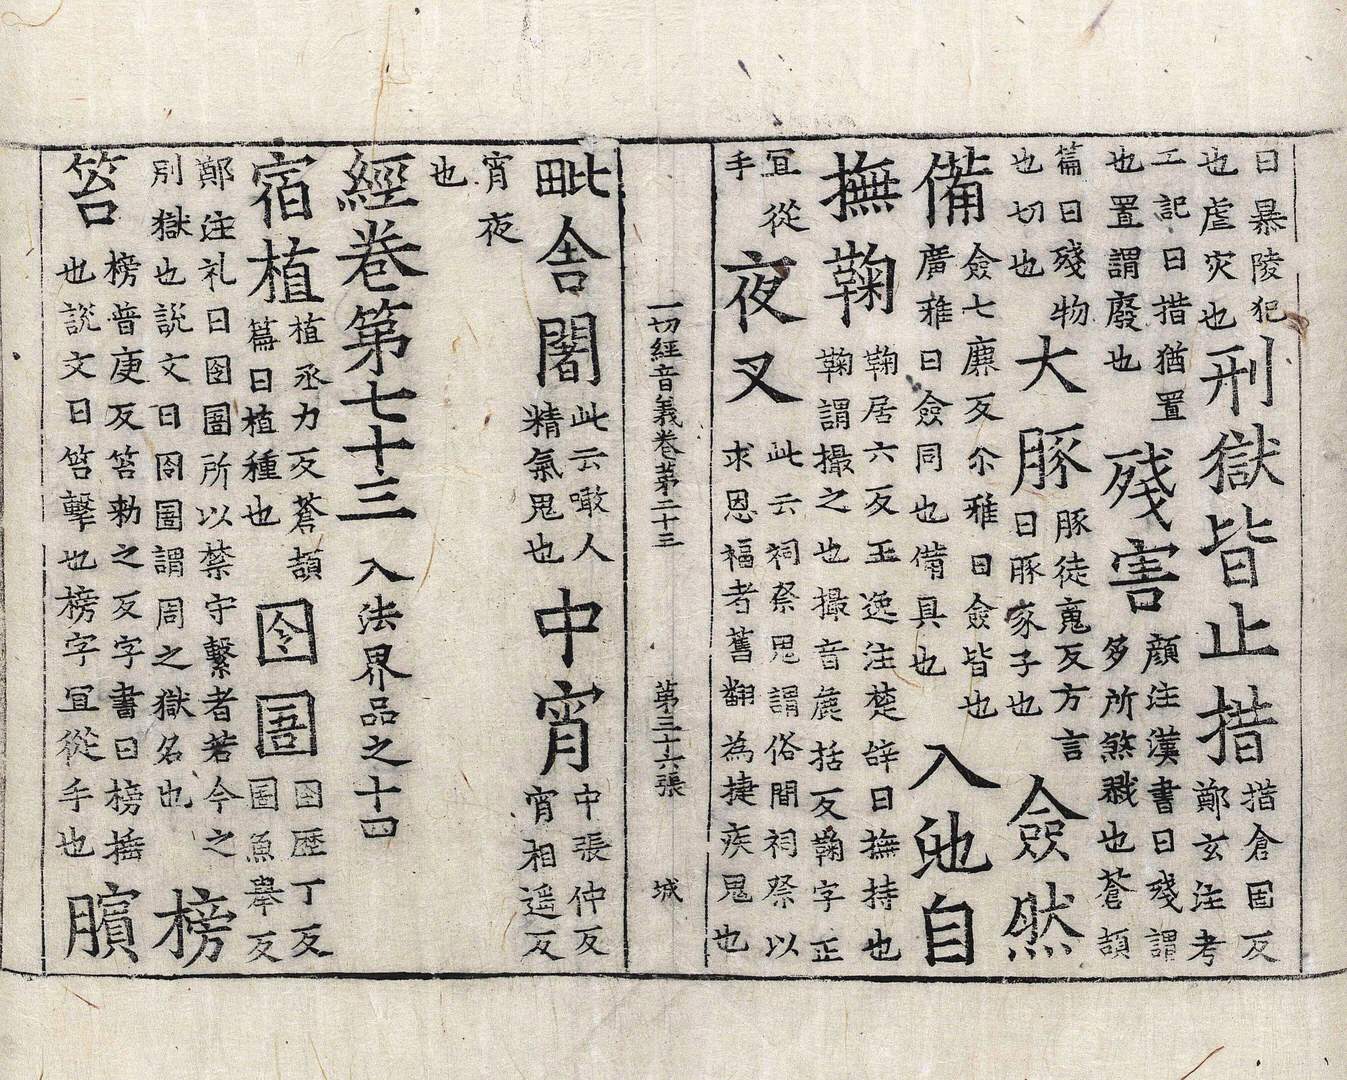 曰暴陵犯
也虐灾也
刑獄皆止措
措倉固反
鄭玄注考
工記曰措猶置
也置謂廢也
殘害
顔注漢書曰殘謂
多所煞戮也蒼頡
篇曰殘物
也切也
大豚
豚徒蒐反方言
曰豚豕子也
僉然
備
僉七廉反尒雅曰僉皆也
廣雅曰僉同也備具也
入自
撫鞠
鞠居六反王逸注楚辝曰撫持也
鞠謂撮之也撮音鹿括反鞠字正
宜從
手
夜叉
此云祠祭鬼謂俗間祠祭以
求恩福者舊翻為捷疾鬼也
一切經音義卷第二十三 第三十六張 城
毗舍闍
此云噉人
精氣鬼也
中宵
中張仲反
宵相遥反
宵夜
也
經卷第七十三 入法界品之十四
宿植
植丞力反蒼頡
篇曰植種也
囹圄
囹歷丁反
圄魚舉反
鄭注礼曰囹圄所以禁守繫者若今之
別獄也說文曰囹圄謂周之獄名也
榜
笞
榜普庚反笞勑之反字書曰榜捶
也說文曰笞擊也榜字宜從手也
臏